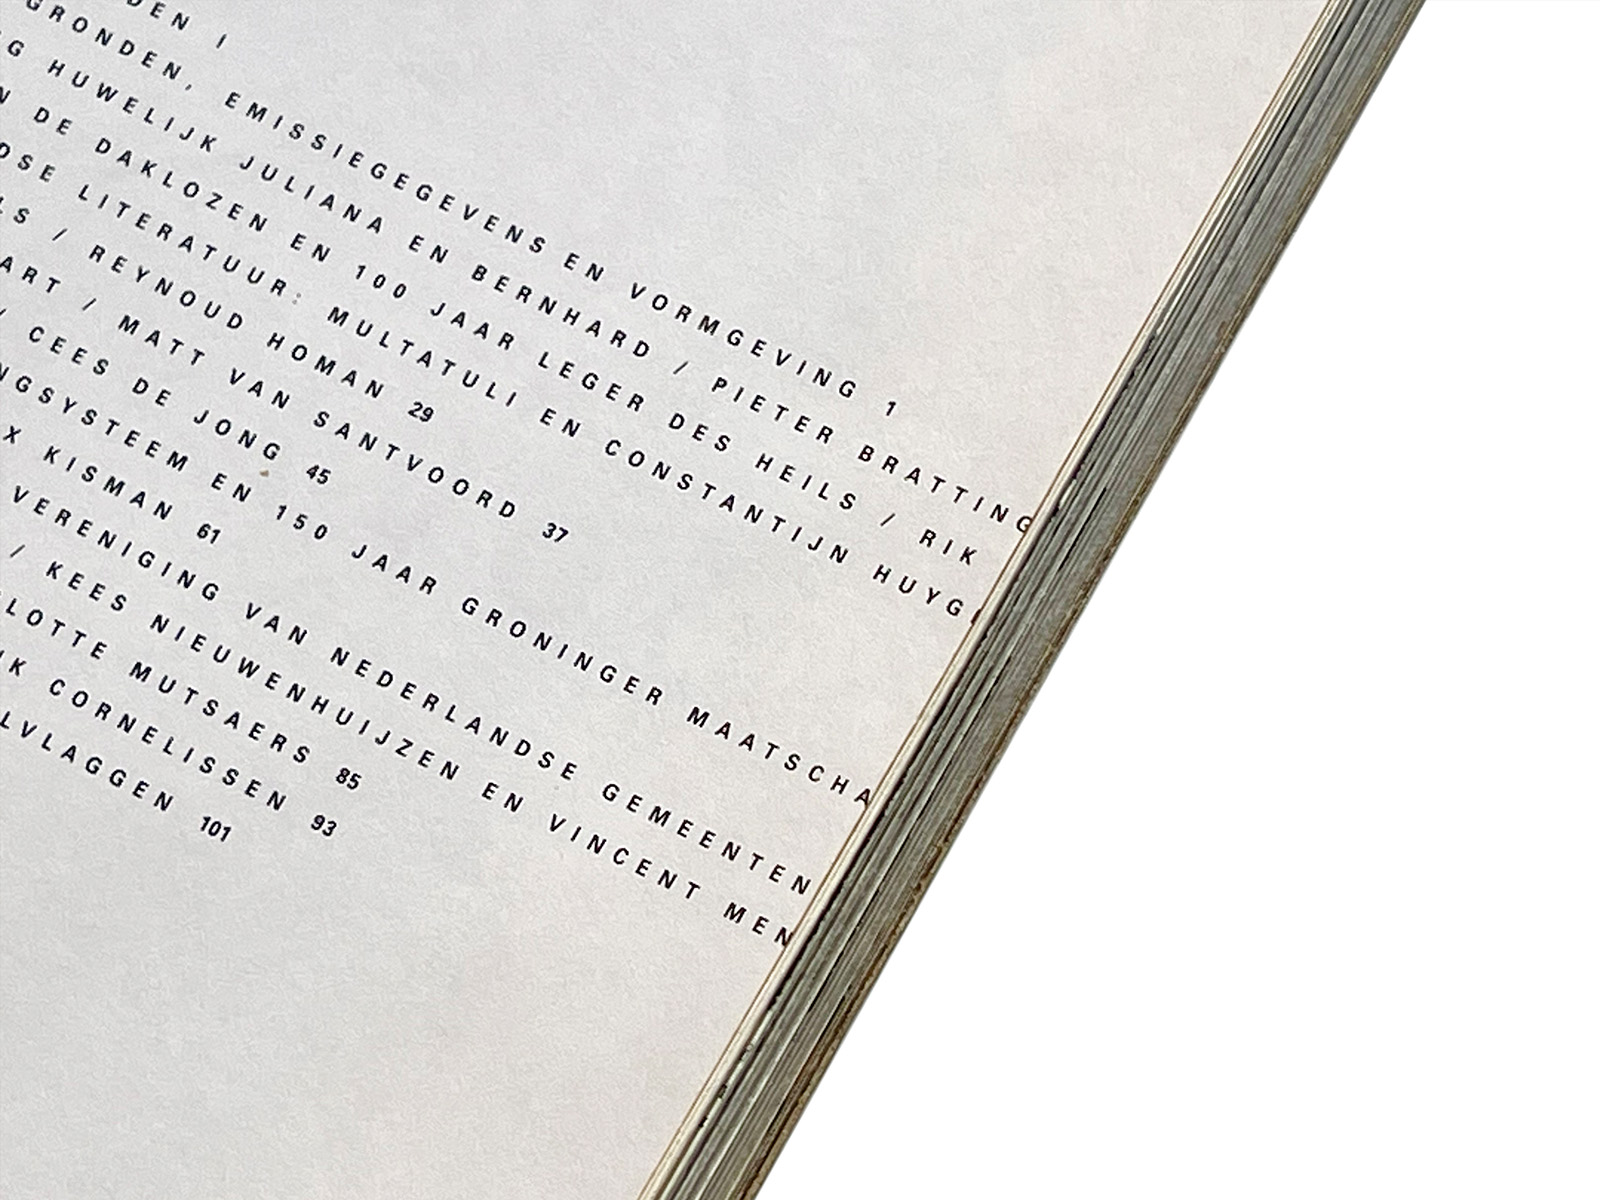 DEN I
GRONDEN, EMISSIEGEGEVENS EN VORMGEVING 1
G HUWELIJK JULIANA EN BERNHARD / PIETER BRATTING
N DE DAKLOZEN EN 100 JAAR LEGER DES HEILS / RIK
DSE LITERATUUR: MULTATULI EN CONSTANTIJN HUYG
LS / REYNOUD HOMAN 29
ART / MATT VAN SANTVOORD 37
/ CEES DE JONG 45
NGSYSTEEM EN 150 JAAR GRONINGER MAATSCHA
X KISMAN 61
VERENIGING VAN NEDERLANDSE GEMEENTEN
/ KEES NIEUWENHUIJZEN EN VINCENT MEN
LOTTE MUTSAERS 85
IK CORNELISSEN 93
LVLAGGEN 101